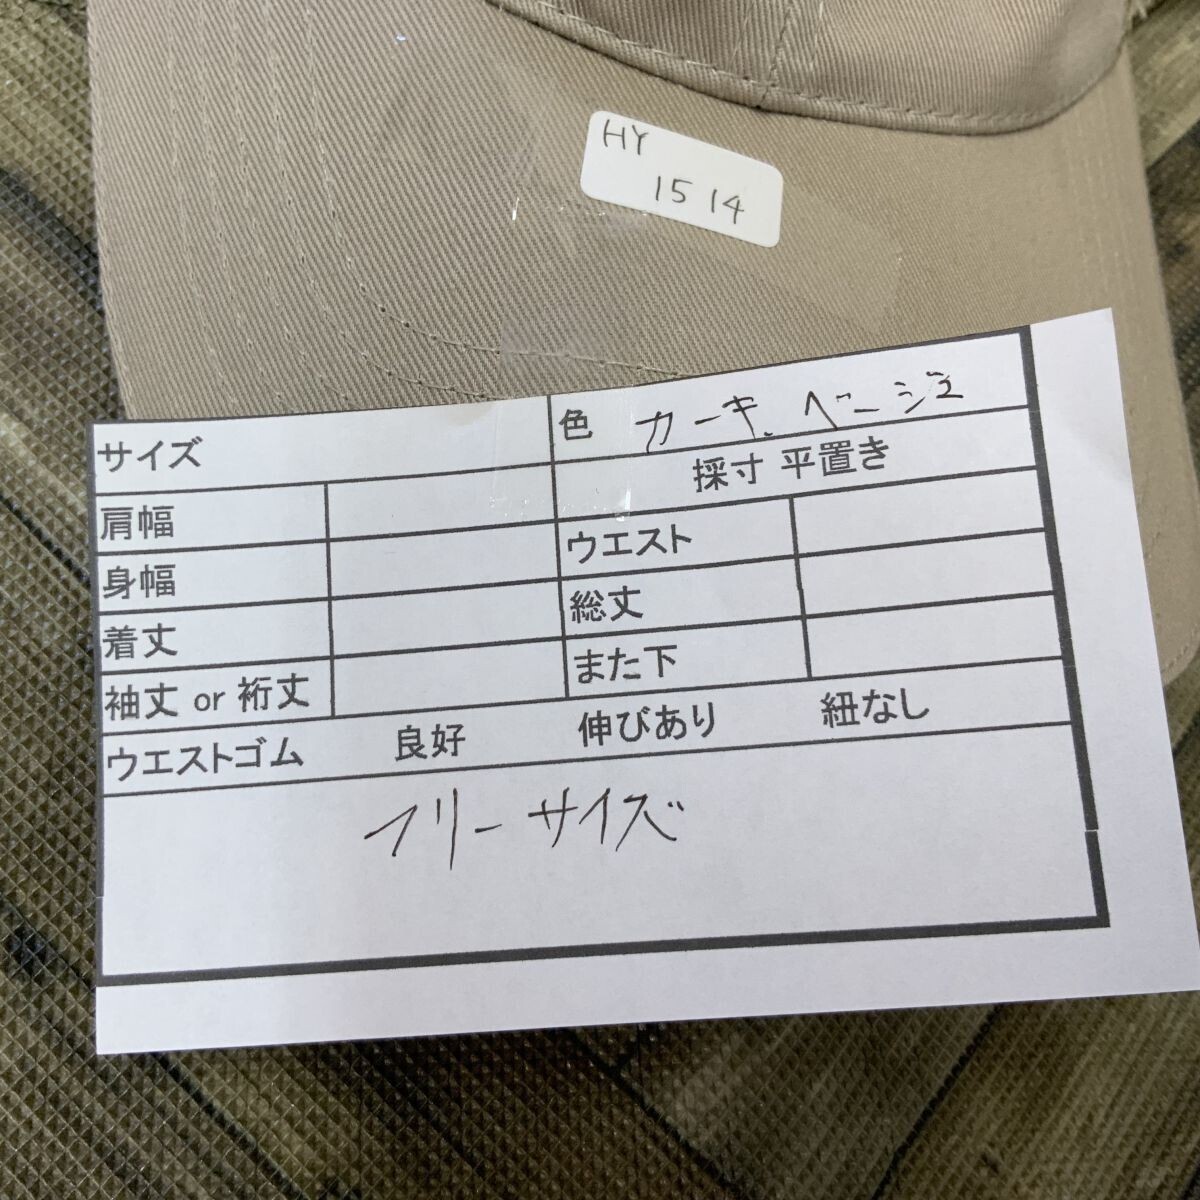 HY
1514
サイズ
色 カーキ、ベージュ
採寸 平置き
肩幅
ウエスト
身幅
総丈
着丈
また下
袖丈 or 裄丈
ウエストゴム 良好 伸びあり 紐なし
フリーサイズ